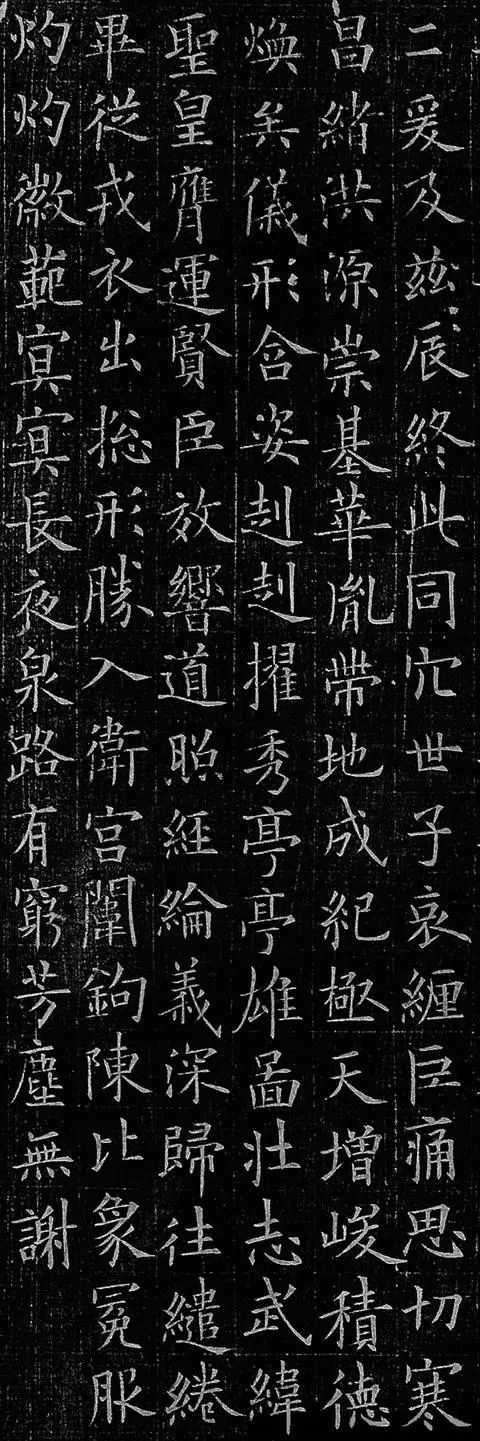 二爰及兹辰終此同穴世子哀纏巨痛思切寒
昌緒洪源崇基華胤帶地成紀極天增峻積德
焕矣儀形含姿赳赳擢秀亭亭雄啚壯志武緯
聖皇膺運賢臣放響道照經綸義深歸往繾綣
畢從戎衣出捴形勝入衛宫闈鉤陳比象冕服
灼灼徽範寘寘長夜泉路有窮芳塵無謝